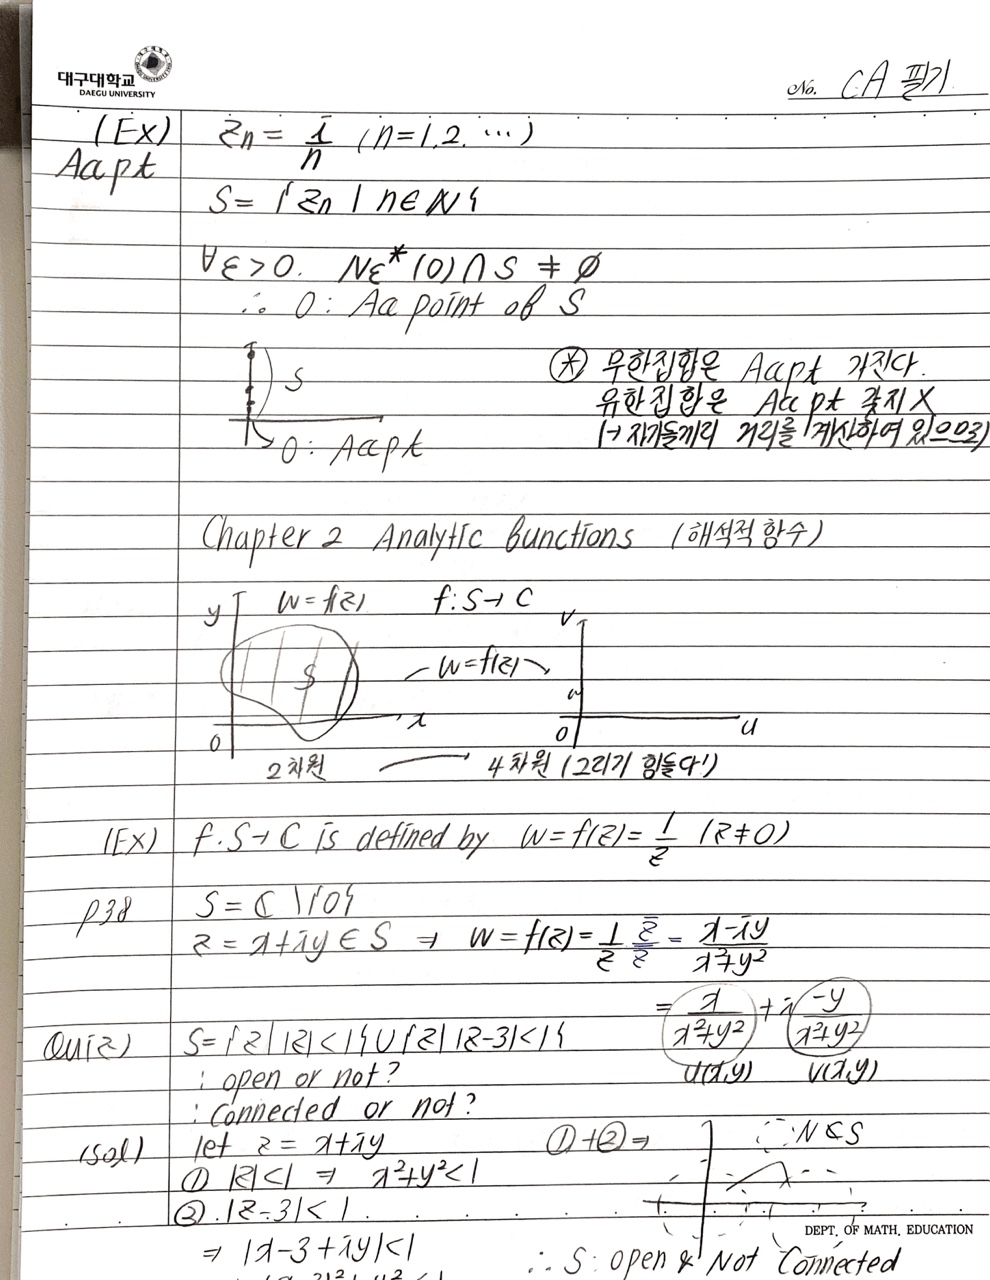 대구대학교
DAEGU UNIVERSITY
No. CA 필기
(Ex) Zn = i/n (n=1,2, ...)
Acc pt
S = {Zn | n∈N}
∀ε>0. Nε*(0)∩S ≠ ∅
∴ 0 : Acc point of S
S
0 : Acc pt
⊛ 무한집합은 Acc pt 가진다.
유한집합은 Acc pt 갖지X
(→ 자기들끼리 거리를 계산하여 있으므로)
Chapter 2 Analytic functions (해석적 함수)
y W=f(z) f:S→C
S
x
0
W=f(z)
v
w
0
u
2차원 4차원 (그리기 힘들다!)
(Ex) f:S→C is defined by W=f(z)=1/z (z≠0)
p38 S=C\{0}
z=x+iy∈S ⇒ W=f(z)=1/z z̄/z̄ = x-iy/x²+y²
= x/x²+y² + i -y/x²+y²
u(x,y) v(x,y)
Quiz) S={z| |z|<1}∪{z| |z-3|<1}
: open or not?
: connected or not?
(sol) let z=x+iy
① |z|<1 ⇒ x²+y²<1
② |z-3|<1
⇒ |x-3+iy|<1
①+②⇒
∴ S: open & Not Connected
DEPT. OF MATH. EDUCATION